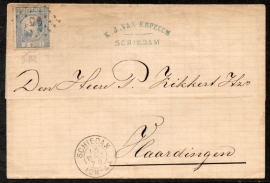 K. J. VAN ERPECUM
SCHIEDAM
Den Heere P. Kikkert Hzn
SCHIEDAM
Vlaardingen